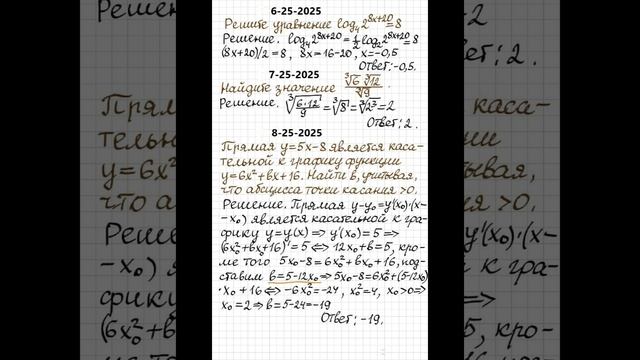 6-25-2025
Решите уравнение log₄2^(8x+20)=8
Решение. log₄2^(8x+20)=1/2 log₂2^(8x+20)=8
(8x+20)/2=8, 8x=16-20, x=-0,5
Ответ:-0,5.
7-25-2025
Найдите значение ∛6·∛12/∛9.
Решение. ∛(6·12/9)=∛8=∛2³=2
Ответ: 2.
8-25-2025
Прямая y=5x-8 является каса-
тельной к графику функции
y=6x²+bx+16. Найти b, учитывая,
что абсцисса точки касания >0.
Решение. Прямая y-y₀=y'(x₀)·(x-
-x₀) является касательной к гра-
фику y=y(x) ⇒ y'(x₀)=5 ⇒
(6x₀²+bx₀+16)'=5 ⇔ 12x₀+b=5, кро-
ме того 5x₀-8=6x₀²+bx₀+16, под-
ставим b=5-12x₀ ⇒ 5x₀-8=6x₀²+(5-12x₀)
·x₀+16 ⇔ -6x₀²=-24, x₀²=4, x₀>0 ⇒
x₀=2 ⇒ b=5-24=-19
Ответ:-19.